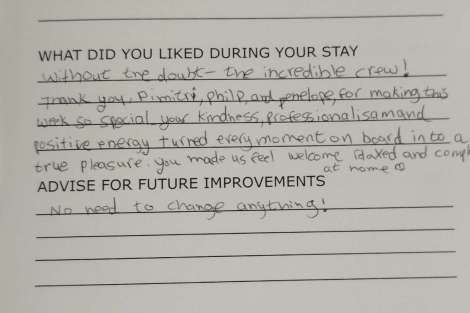 WHAT DID YOU LIKED DURING YOUR STAY
without the doubt - the incredible crew!
Thank you, Dimitri, Philp, and Penelope, for making this
week so special your kindness, professionalism and
positive energy turned every moment on board into a
true pleasure. you made us feel welcome relaxed and
at home ☺
ADVISE FOR FUTURE IMPROVEMENTS
No need to change anything!